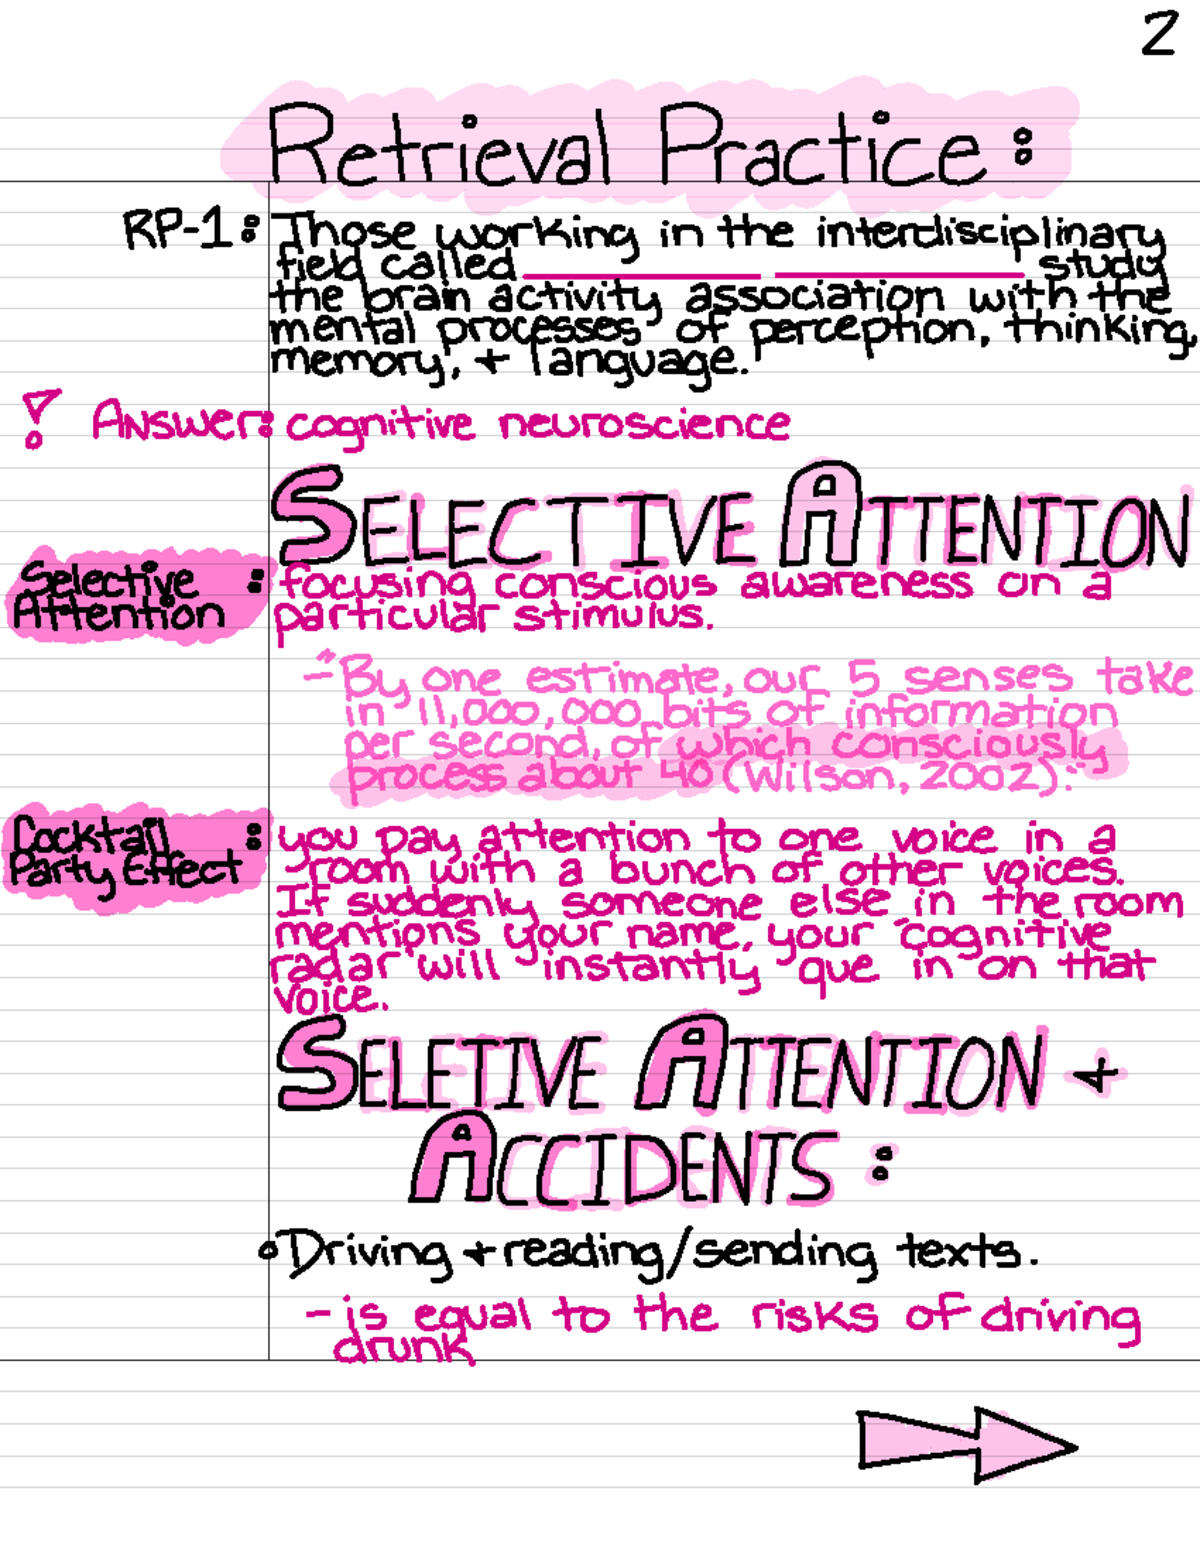 2
Retrieval Practice:
RP-1: Those working in the interdisciplinary
field called ___ ___ study
the brain activity association with the
mental processes of perception, thinking,
memory, + language.
! Answer: cognitive neuroscience
SELECTIVE ATTENTION
Selective Attention: focusing conscious awareness on a
particular stimulus.
- "By one estimate, our 5 senses take
in 11,000,000 bits of information
per second, of which consciously
process about 40 (Wilson, 2002)."
Cocktail Party Effect: you pay attention to one voice in a
room with a bunch of other voices.
If suddenly someone else in the room
mentions your name, your cognitive
radar will instantly que in on that
voice.
SELETIVE ATTENTION +
ACCIDENTS:
Driving + reading/sending texts.
- is equal to the risks of driving
drunk